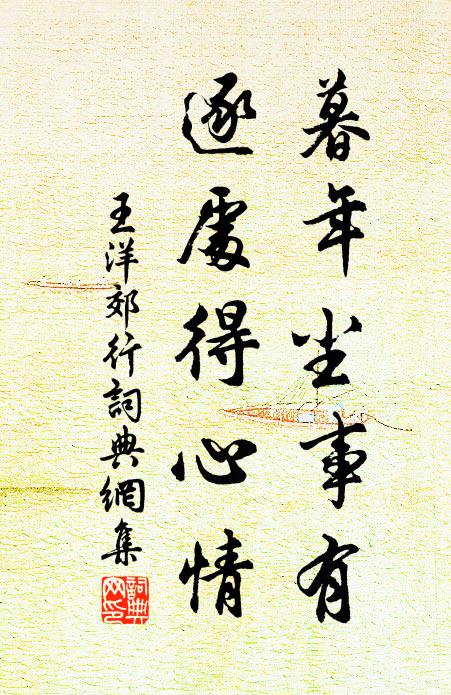 暮年坐事有
逐處得心情
王洋郊行詞典網集
詞典網印